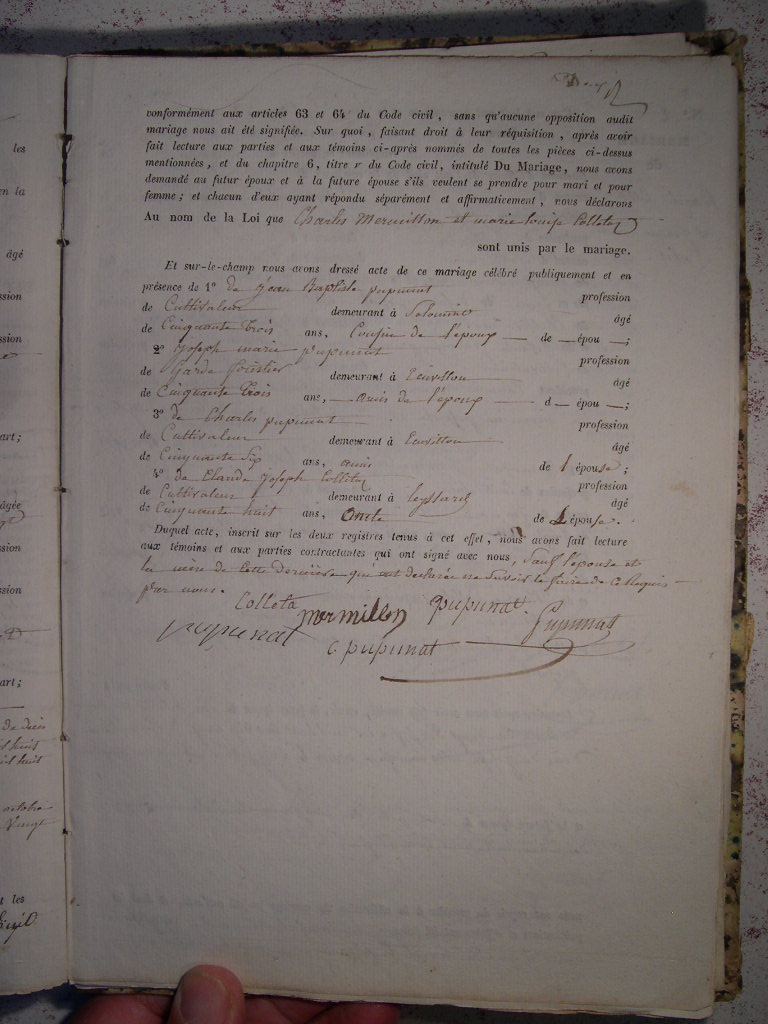 les
en la
âgé
ssion
ssion
art;
âgée
ssion
ssion
art;
de
octobre
Vingt
les
conformément aux articles 63 et 64 du Code civil, sans qu'aucune opposition audit
mariage nous ait été signifiée. Sur quoi, faisant droit à leur réquisition, après avoir
fait lecture aux parties et aux témoins ci-après nommés de toutes les pièces ci-dessus
mentionnées, et du chapitre 6, titre v du Code civil, intitulé Du Mariage, nous avons
demandé au futur époux et à la future épouse s'ils veulent se prendre pour mari et pour
femme; et chacun d'eux ayant répondu séparément et affirmativement, nous déclarons
Au nom de la Loi que Charles Mermillon et marie louise Colleta
sont unis par le mariage.
Et sur-le-champ nous avons dressé acte de ce mariage célébré publiquement et en
présence de 1° de jean Baptiste pupunat profession
de Cultivateur demeurant à âgé
de Cinquante trois ans, Cousin de l'époux de épou ;
2° Joseph marie pupunat profession
de Garde forestier demeurant à âgé
de Cinquante trois ans, amis de l'époux d épou ;
3° de Charles pupunat profession
de Cultivateur demeurant à âgé
de Cinquante Six ans, amis de l épouse ;
4° de Claude joseph Colleta profession
de Cultivateur demeurant à âgé
de Cinquante huit ans, Oncle de L épouse.
Duquel acte, inscrit sur les deux registres tenus à cet effet, nous avons fait lecture
aux témoins et aux parties contractantes qui ont signé avec nous, Sauf l'épouse et
la mère de Cette dernière qui ont déclaré ne Savoir le faire de Ce Requis
par nous.
Colleta mermillon pupunat. pupunat
pupunat c. pupunat